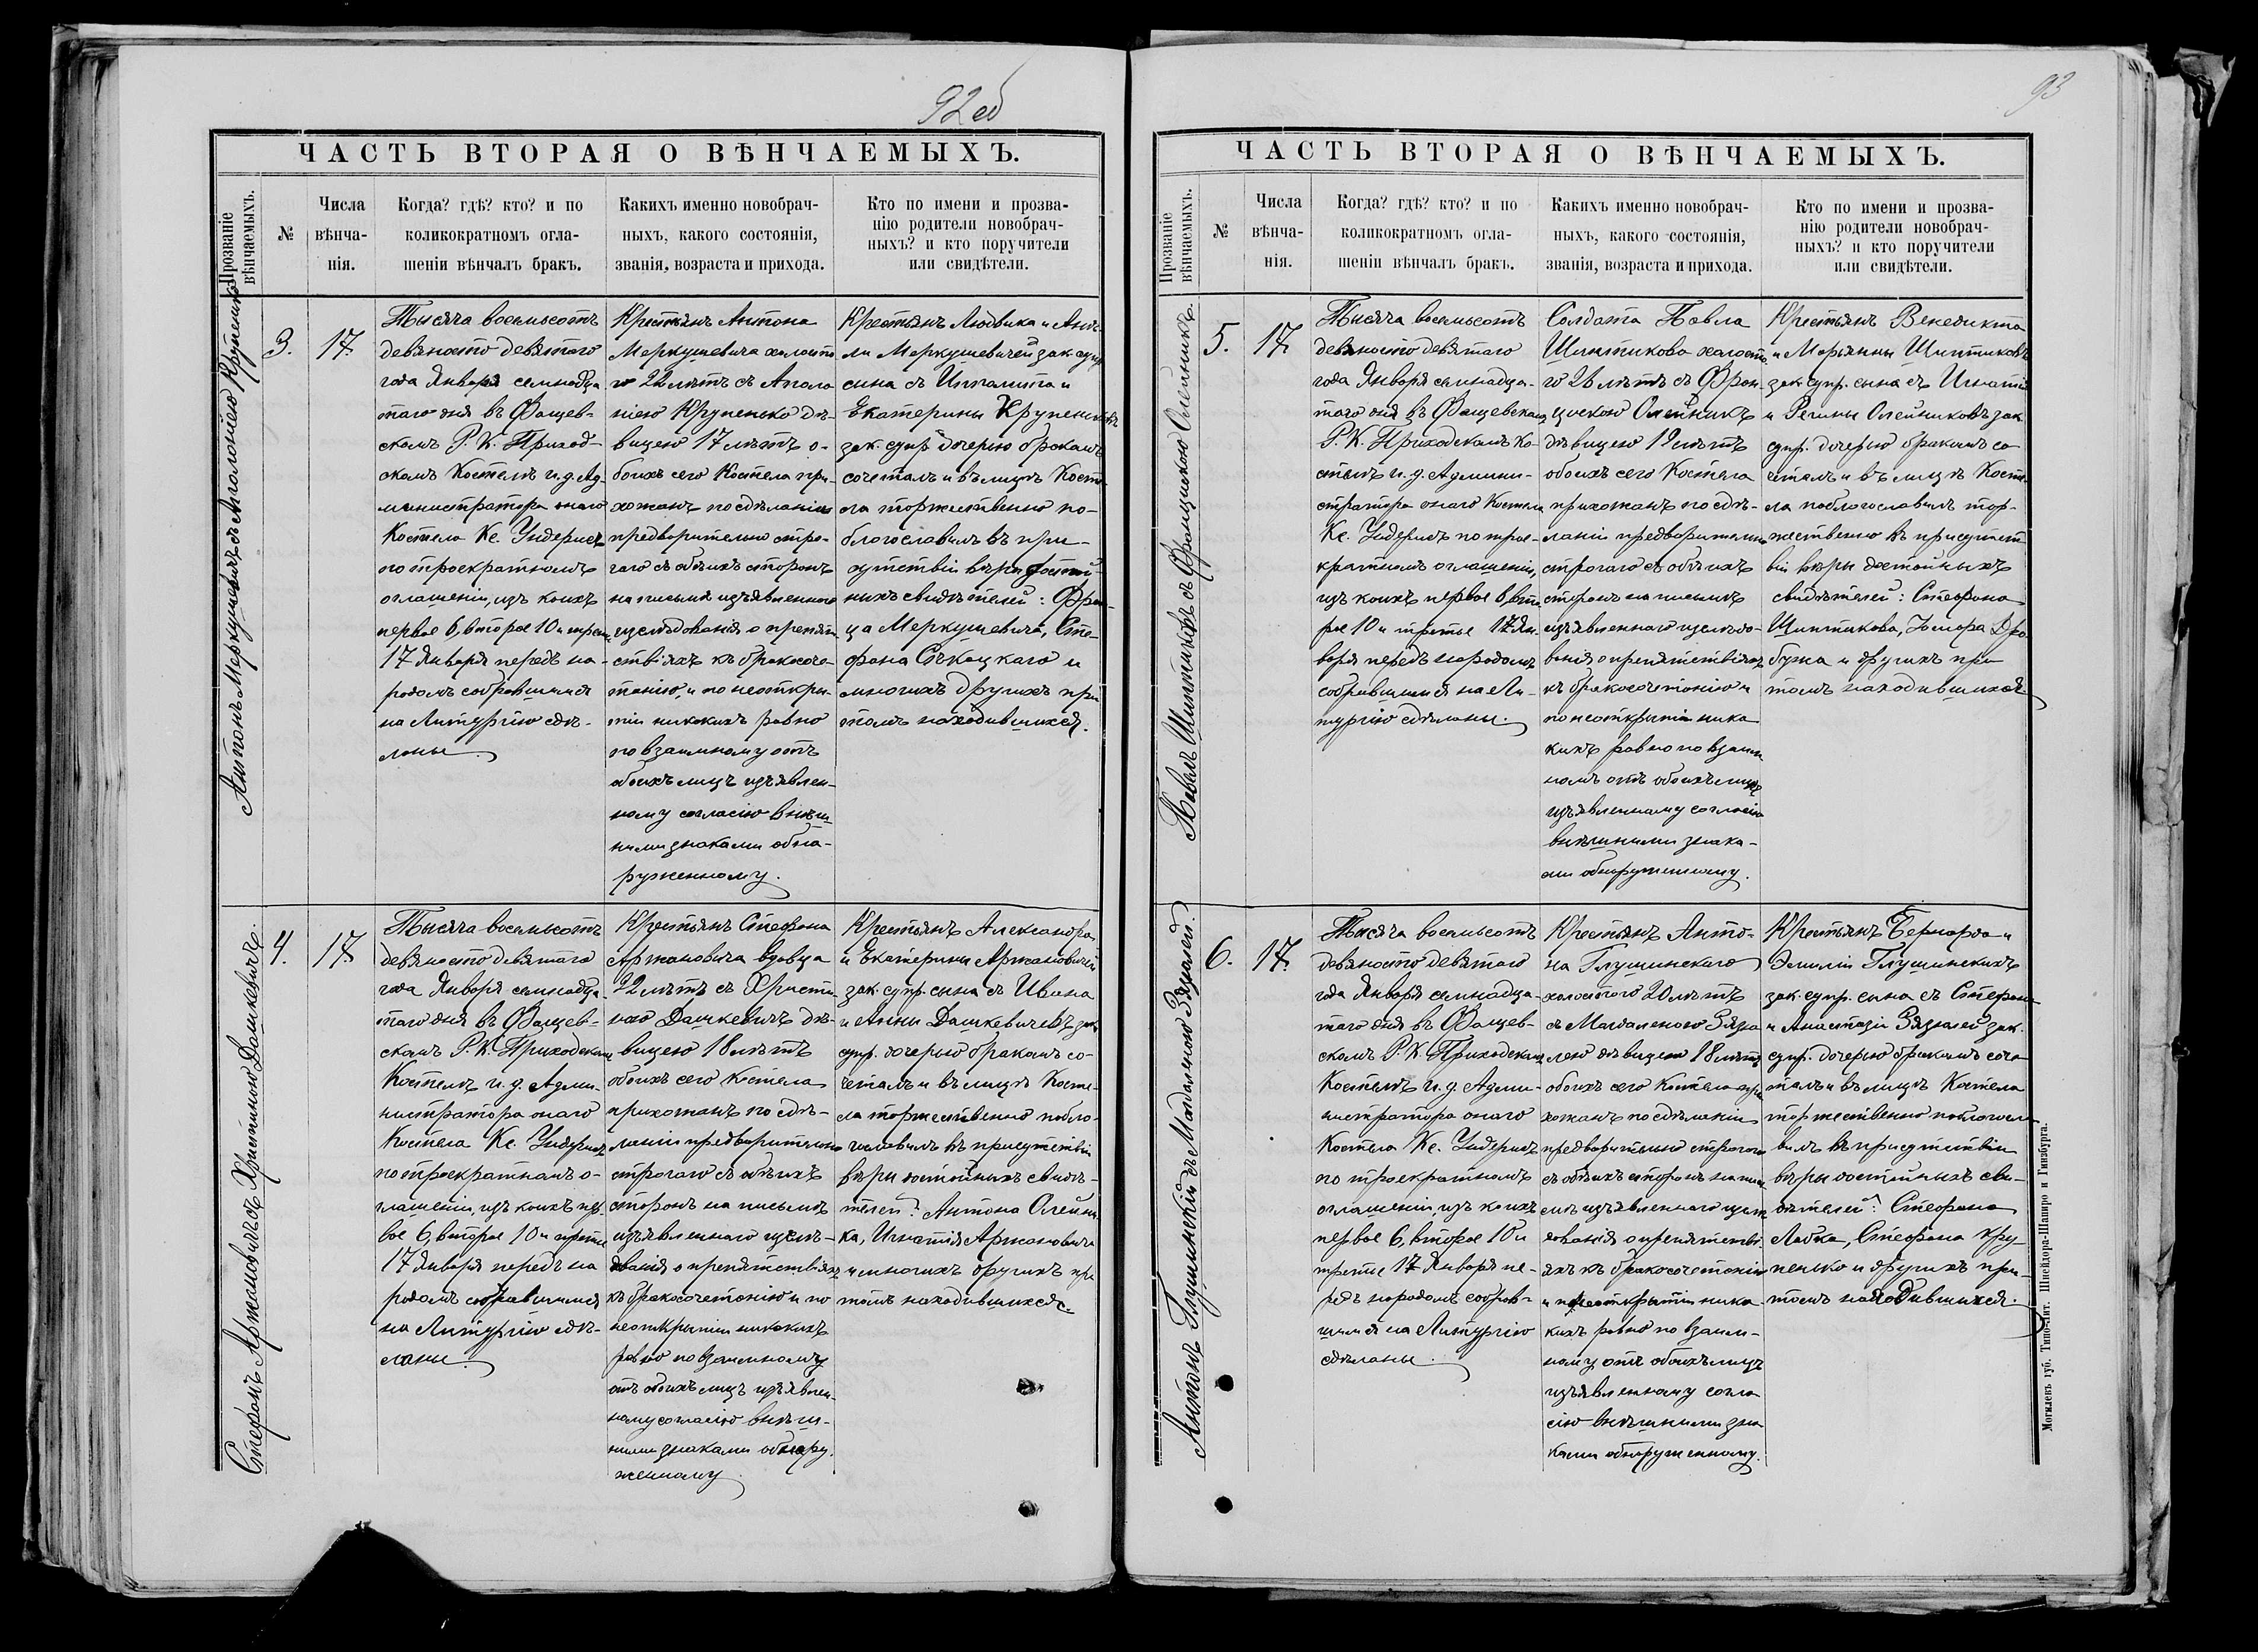 92об
ЧАСТЬ ВТОРАЯ О ВѢНЧАЕМЫХЪ.
Прозваніе
вѣнчаемыхъ.
№
Числа
вѣнча-
нія.
Когда? гдѣ? кто? и по
коликократномъ огла-
шеніи вѣнчалъ бракъ.
Какихъ именно новобрач-
ныхъ, какого состоянія,
званія, возраста и прихода.
Кто по имени и прозва-
нію родители новобрач-
ныхъ? и кто поручители
или свидѣтели.
Антонъ Меркушевичъ съ Аполоніею Крупенько
3.
17.
Тысяча восемьсотъ
девяносто девятаго
года Января семнадца
таго дня въ Фащев-
скомъ Р. К. Приход-
скомъ Костелѣ и. д. Ад-
министратора онаго
Костела Кс. Ундерисъ
по троекратномъ
оглашеніи, изъ коихъ
первое 6, второе 10 и трет.
17 Января передъ на-
родомъ собравшимся
на Литургію сдѣ-
ланы.
Крестьянъ Антона
Меркушевича холосто
го 22 лѣтъ съ Аполо
ніею Крупенько дѣ-
вицею 17 лѣтъ о-
боихъ сего Костела при-
хожанъ по сдѣланіи
предворительно стро-
гаго съ обѣихъ сторонъ
на письмѣ изъявленнаго
изслѣдованія о препят
ствіяхъ къ бракосоче-
танію, и по неоткры-
тіи никакихъ равно
по взаимному отъ
обоихъ лицъ изъявлен-
ному согласію внѣш
ними знаками обна-
руженному.
Крестьянъ Людвика и Анге
ли Меркушевичей зак. супр.
сына съ Ипполита и
Екатерины Крупеньковъ
зак. супр. дочерью бракомъ
сочеталъ и въ лицѣ Косте
ла торжественно по-
благославилъ въ при-
сутствіи вѣры достой-
ныхъ свидѣтелей: Фран-
ца Меркушевича, Сте-
фана Сѣкацкаго и
многихъ другихъ при
томъ находившихся.
Стефанъ Аржановичъ съ Христиною Дашкевичъ.
4.
17.
Тысяча восемьсотъ
девяносто девятаго
года Января семнадца-
таго дня въ Фащев-
скомъ Р. К. Приходскомъ
Костелѣ и. д. Адми-
нистратора онаго
Костела Кс. Ундерисъ
по троекратномъ о-
глашеніи, изъ коихъ пер-
вое 6, второе 10 и третье
17 Января передъ на
родомъ собравшимся
на Литургію сдѣ-
ланы.
Крестьянъ Стефана
Аржановича вдовца
22 лѣтъ съ Христи-
ною Дашкевичъ дѣ-
вицею 18 лѣтъ
обоихъ сего костела
прихожанъ по сдѣ-
ланіи предворительно
строгаго съ обѣихъ
сторонъ на письмѣ
изъявленнаго изслѣ-
дованія о препятствіяхъ
къ бракосочетанію и по
неоткрытіи никакихъ
равно по взаимному
отъ обоихъ лицъ изъявлен-
ному согласію внѣш-
ними знаками обнару-
женному.
Крестьянъ Александра
и Екатерины Аржановичей
зак. супр. сына съ Ивана
и Анны Дашкевичевъ зак.
супр. дочерью бракомъ со-
четалъ и въ лицѣ Косте-
ла торжественно побла-
гославилъ въ присутствіи
вѣры достойныхъ свидѣ-
телей: Антона Олейни-
ка, Игнатія Аржановича
и многихъ другихъ при
томъ находившихся.
93
ЧАСТЬ ВТОРАЯ О ВѢНЧАЕМЫХЪ.
Прозваніе
вѣнчаемыхъ.
№
Числа
вѣнча-
нія.
Когда? гдѣ? кто? и по
коликократномъ огла-
шеніи вѣнчалъ бракъ.
Какихъ именно новобрач-
ныхъ, какого состоянія,
званія, возраста и прихода.
Кто по имени и прозва-
нію родители новобрач-
ныхъ? и кто поручители
или свидѣтели.
Павелъ Шинтиковъ съ Францискою Олейникъ.
5.
17.
Тысяча восемьсотъ
девяносто девятаго
года Января семнадца-
таго дня въ Фащевскомъ
Р. К. Приходскомъ Ко-
стелѣ и. д. Админи-
стратора онаго Костела
Кс. Ундерисъ по трое-
кратномъ оглашеніи,
изъ коихъ первое 6, вто
рое 10 и третье 17 Ян-
варя передъ народомъ
собравшимся на Ли-
тургію сдѣланы.
Солдата Павла
Шинтикова холосто
го 26 лѣтъ съ Фран-
цискою Олейникъ
дѣвицею 19 лѣтъ
обоихъ сего Костела
прихожанъ по сдѣ-
ланіи предворительно
строгаго съ обѣихъ
сторонъ на письмѣ
изъявленнаго изслѣдо-
ванія о препятствіяхъ
къ бракосочетанію и
по неоткрытіи ника
кихъ равно по взаим
номъ отъ обоихъ лицъ
изъявленному согласію
внѣшними знака-
ми обнаруженному.
Крестьянъ Венедикта
и Марьянны Шинтиковъ
зак. супр. сына съ Игнатія
и Регины Олейниковъ зак.
супр. дочерью бракомъ со
четалъ и въ лицѣ Косте
ла поблагославилъ тор-
жественно въ присутст
віи вѣры достойныхъ
свидѣтелей: Стефана
Шинтикова, Дро
бужа и другихъ при
томъ находившихся.
Антонъ Глушинскій съ Магдаленою Зязюлей.
6.
17.
Тысяча восемьсотъ
девяносто девятаго
года Января семнадца-
таго дня въ Фащев-
скомъ Р. К. Приходскомъ
Костелѣ и. д. Адми-
нистратора онаго
Костела Кс. Ундерисъ
по троекратномъ
оглашеніи, изъ коихъ
первое 6, второе 10 и
третье 17 Января пе-
редъ народомъ собрав-
шимся на Литургію
сдѣланы.
Крестьянъ Анто-
на Глушинскаго
холостого 20 лѣтъ
съ Магдаленою Зязю
лею дѣвицею 18 лѣтъ
обоихъ сего Костела при
хожанъ по сдѣланіи
предворительно строгаго
съ обѣихъ сторонъ на пись
мѣ изъявленнаго изслѣ
дованія о препятстві-
яхъ къ бракосочетанію
и по неоткрытіи ника
кихъ равно по взаим-
ному отъ обоихъ лицъ
изъявленному согла
сію внѣшними зна
ками обнаруженному.
Крестьянъ Бернарда и
Эмиліи Глушинскихъ
зак. супр. сына съ Стефана
и Анастазіи Зязюлей зак.
супр. дочерью бракомъ соче
талъ и въ лицѣ Костела
торжественно поблагосла
вилъ въ присутствіи
вѣры достойныхъ сви-
дѣтелей: Стефана
Стефана Кру
пенько и другихъ при-
томъ находившихся.
Могилевъ губ. Типо-лит. Шнейдора-Шапиро и Гинзбурга.